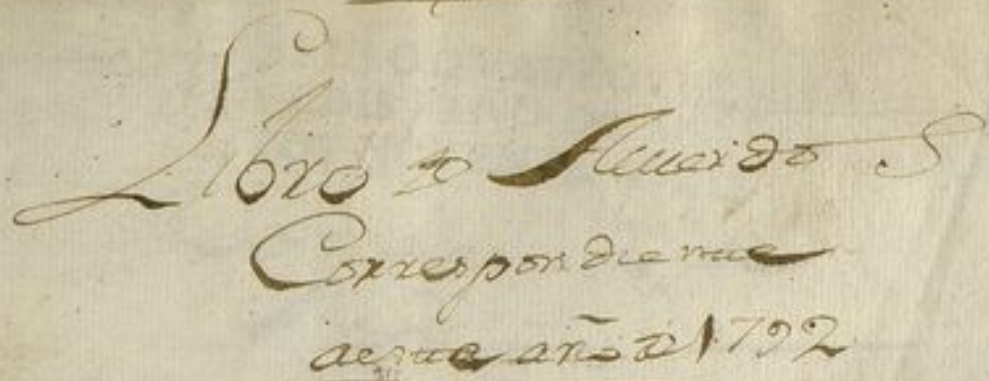 Libro de Acuerdo S
Correspondiente
a este año de 1792